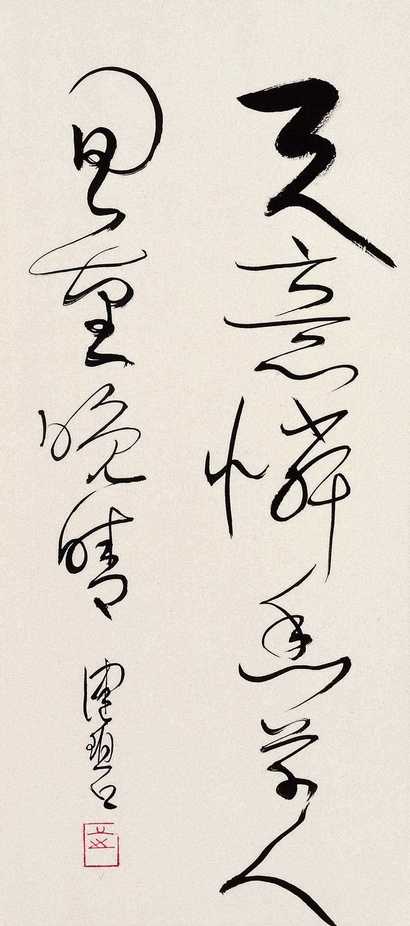 天意憐幽草人
間重晚晴